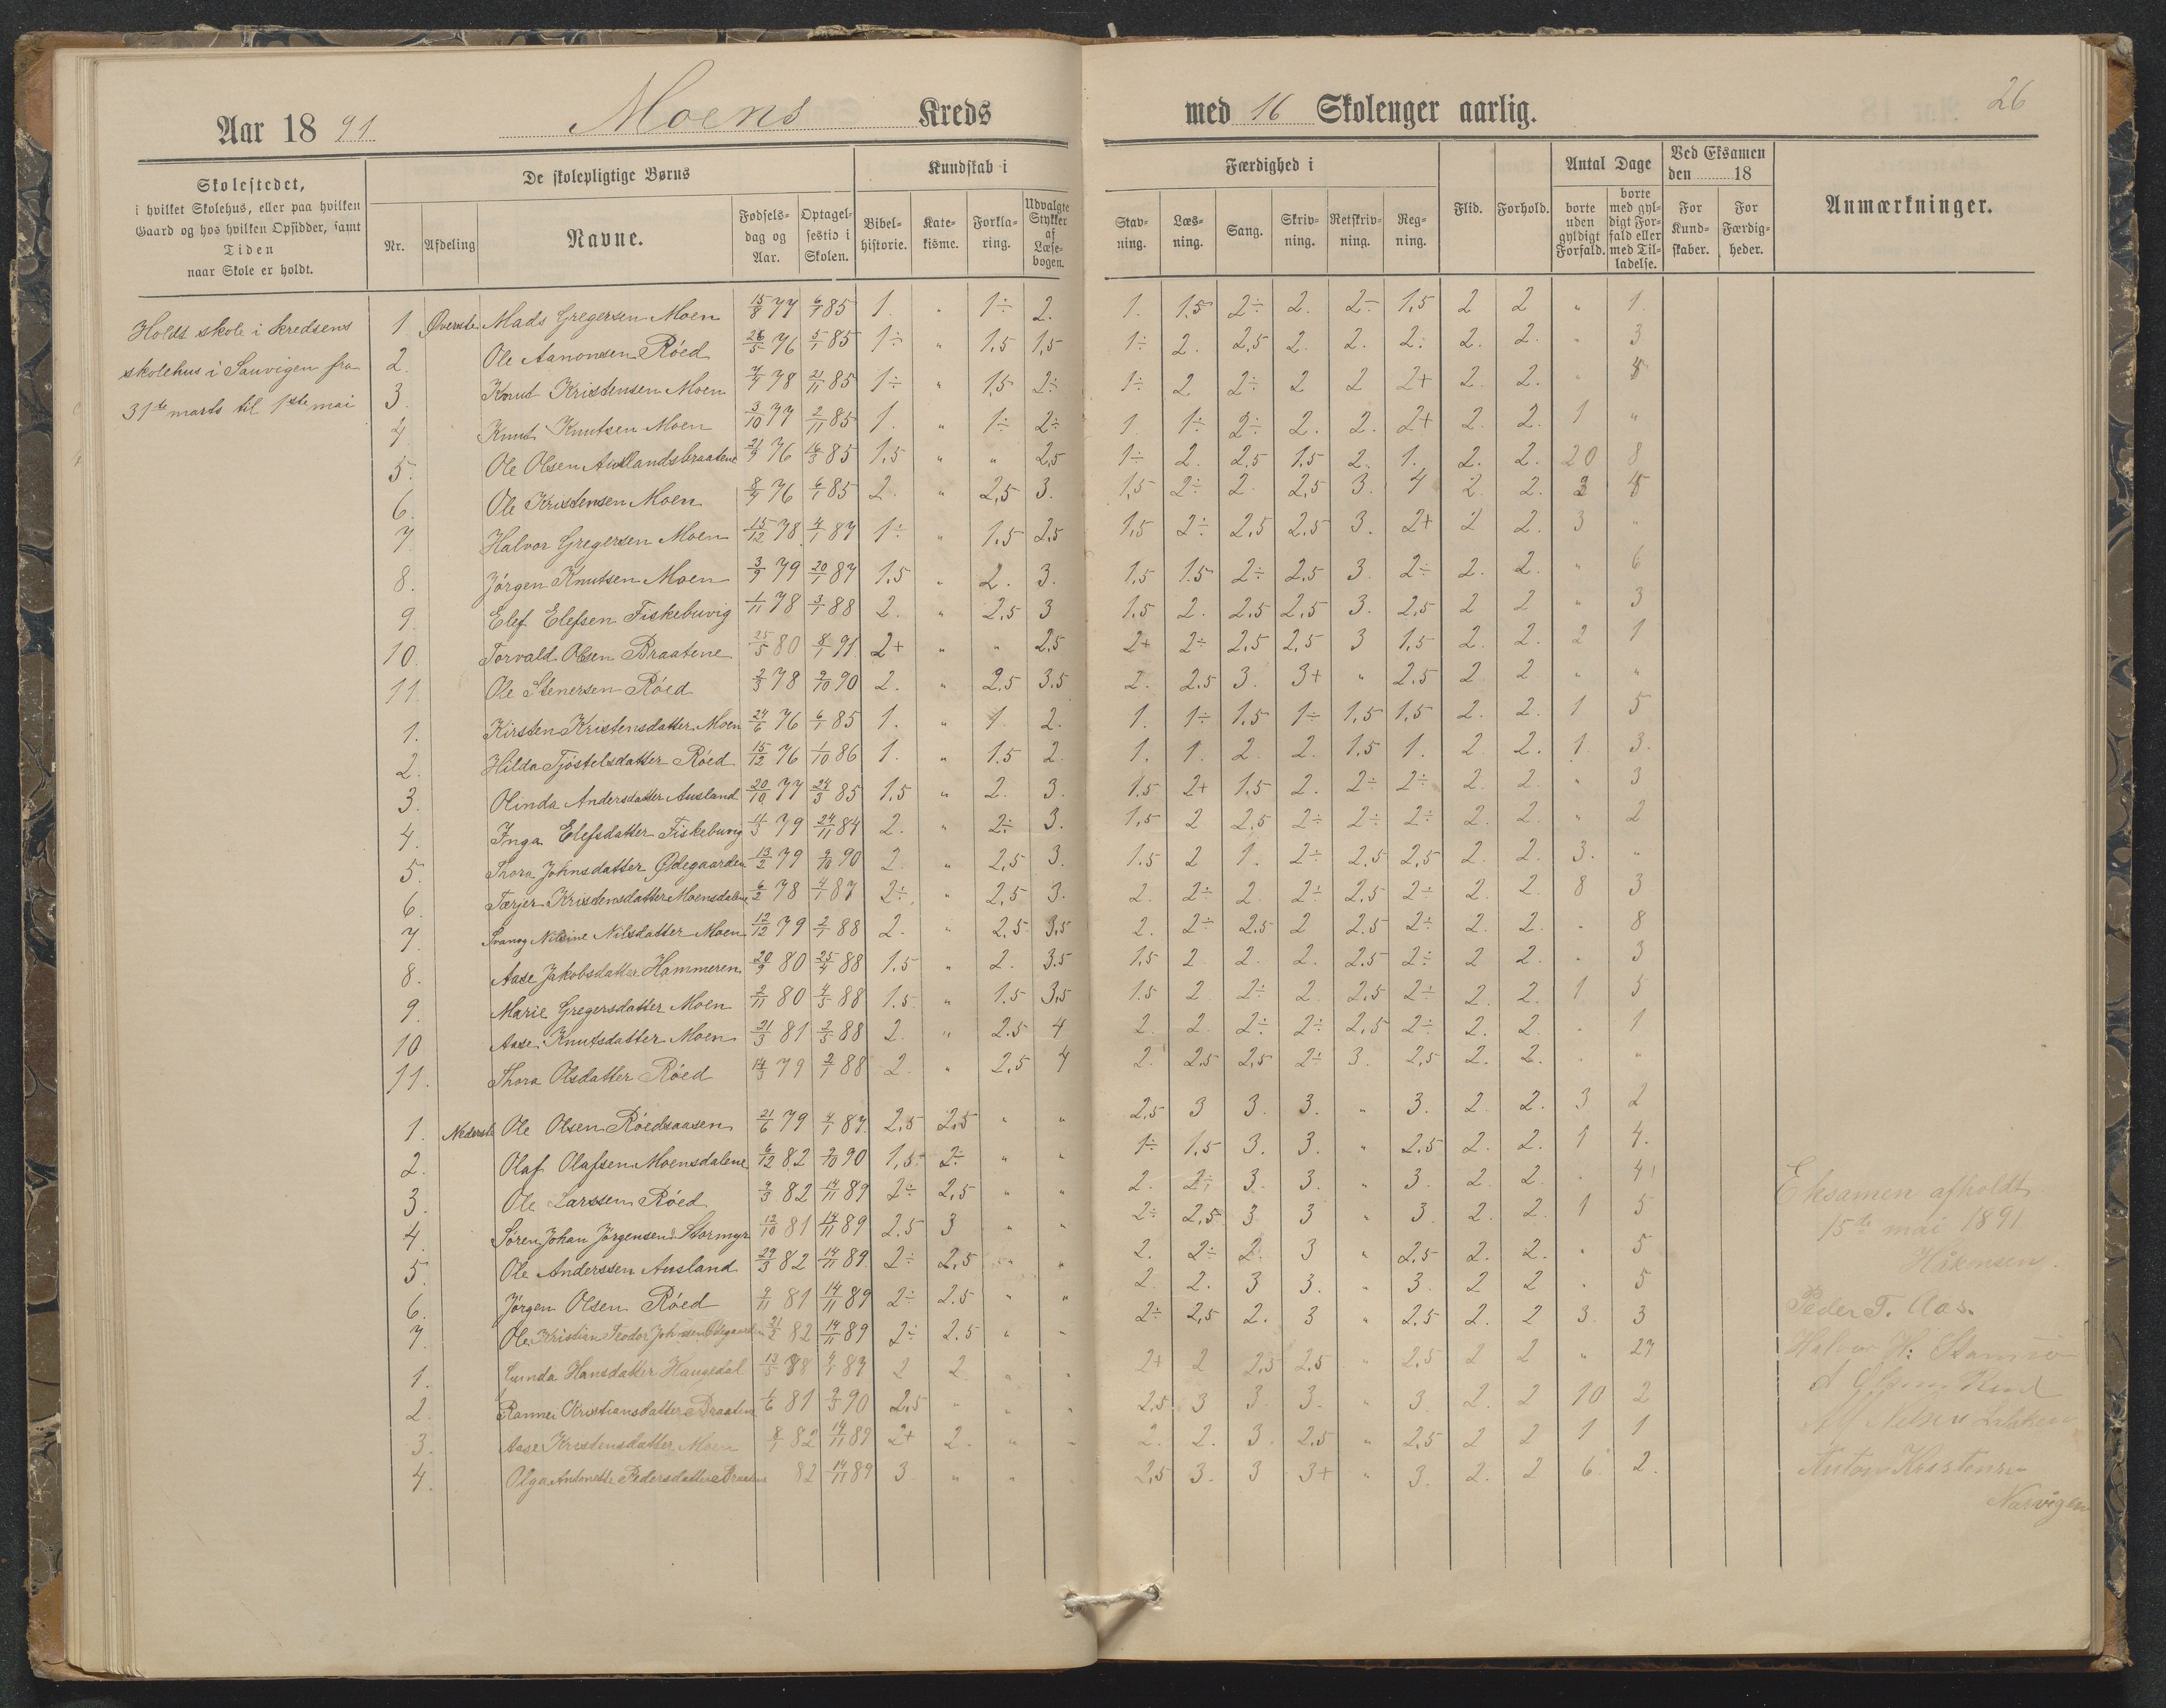 26
Aar 1891 Moens Kreds med 16 Skoleuger aarlig.
Skolestedet,
i hvilket Skolehus, eller paa hvilken
Gaard og hos hvilken Opsidder, samt
Tiden
naar Skole er holdt.
De skolepligtige Børns
Nr. Afdeling Navne. Fødsels-dag og Aar. Optagel-sestid i Skolen.
Kundskab i
Bibel-historie. Kate-kisme. Forkla-ring. Udvalgte Stykker af Læse-bogen.
Færdighed i
Stav-ning. Læs-ning. Sang. Skriv-ning. Retskriv-ning. Reg-ning.
Flid. Forhold.
Antal Dage
borte uden gyldigt Forfald. borte med gyl-digt For-fald eller med Til-ladelse.
Ved Eksamen den 18
For Kund-skaber. For Færdig-heder.
Anmærkninger.
Holdt skole i kredsens
skolehus i Sauvigen fra
31te marts til 1ste mai
1 Øverste Mads Gregersen Moen 15/8 77 6/1 85 1. " 1÷ 2. 1. 1.5 2÷ 2. 2÷ 1,5 2 2 " 1.
2. Ole Aanonsen Róed 26/5 76 5/1 85 1÷ " 1,5 1,5 1÷ 2. 2,5 2. 2. 2. 2. 2. " 3
3. Knut Kristensen Moen 7/7 78 21/11 85 1÷ " 1,5 2÷ 1÷ 2 2÷ 2 2 2+ 2. 2. "
4 Knut Knutsen Moen 3/10 77 2/11 85 1. " 1÷ 2÷ 1 1÷ 2÷ 2. 2. 2+ 2. 2. 1 "
5. Ole Olsen Auslandsbraatene 21/9 76 16/3 85 1,5 " " 2,5 1÷ 2. 2,5 1.5 2. 1. 2. 2. 20 8
6. Ole Kristensen Moen 8/7 76 6/1 85 2. " 2,5 3. 1,5 2÷ 2. 2,5 3. 4 2. 2.
7. Halvor Gregersen Moen 15/12 78 4/1 87 1÷ " 1.5 2.5 1,5 2÷ 2,5 2,5 3. 2+ 2 2. 3 "
8. Jórgen Knutsen Moen 3/9 79 20/1 87 1.5 " 2. 3. 1,5 1.5 2÷ 2,5 3. 2÷ 2. 2. " 6
9. Elef Elefsen Fiskebuvig 1/11 78 3/1 88 2. " 2.5 3 1.5 2. 2.5 2,5 3. 2,5 2 2 " 3
10. Torvald Olsen Braatene 25/5 80 8/1 91 2+ " " 2.5 2+ 2÷ 2,5 2,5 3 1,5 2. 2. 2 1
11. Ole Stenersen Róed 2/3 78 9/10 90 2. " 2.5 3.5 2. 2.5 3. 3+ " 2.5 2 2 " "
1. Kirsten Kristensdatter Moen 24/6 76 6/1 85 1. " 1 2. 1. 1÷ 1.5 1÷ 1,5 1,5 2. 2. 1 5
2. Hilda Tjóstelsdatter Róed 15/12 76 1/10 86 1. " 1.5 2. 1. 1. 2 2. 1.5 1. 2 2. 1. 3.
3. Olinda Andersdatter Ausland 20/10 77 24/3 85 1,5 " 2. 3. 1,5 2+ 1.5 2. 2÷ 2÷ 2. 2. " 3
4. Inga Elefsdatter Fiskebuvig 79 24/11 84 2. " 2÷ 3. 1,5 2 2,5 2÷ 2÷ 2÷ 2. 2. " 2
5. Thora Johnsdatter Ødegaarden 13/2 79 9/10 90 2. " 2,5 3. 1.5 2 1. 2÷ 2.5 2,5 2. 2. 3. "
6. Tærjer Kristensdatter Moensdalene 6/2 78 4/1 87 2÷ " 2,5 3. 2. 2÷ 2. 2÷ 2.5 2÷ 2. 2. 8 3
7. Nilsine Nilsdatter Moen 12/12 79 2/1 88 2. " 2.5 3.5 2. 2÷ 2.5 2 2.5 2÷ 2. 2. " 8
8. Aase Jakobsdatter Hammeren 20/9 80 25/4 88 1.5 " 2. 3.5 1,5 2 2. 2. 2.5 2÷ 2 2. " 3
9. Marie Gregersdatter Moen 2/11 80 4/5 88 1.5 " 1.5 3,5 1.5 2 2÷ 2 2,5 2÷ 2. 2. 1 5
10 Aase Knutsdatter Moen 21/3 81 2/5 88 2. " 2.5 4 2. 2. 2÷ 2÷ 2,5 2÷ 2. 2. " 1
11. Thora Olsdatter Róed 14/3 79 2/1 88 2. " 2,5 4 2. 2,5 2,5 2÷ 3. 2,5 2. 2. " "
1. Nederste Ole Olsen Róedsaasen 21/6 79 4/1 87 2,5 2,5 " " 2.5 3 3. 3. " 3. 2. 2. 3 2
2. Olaf Olafsen Moensdalene 6/12 82 9/10 90 1,5 2÷ " " 1÷ 1.5 3. 3. " 2.5 2. 2. 1 4.
3. Ole Larssen Róed 9/3 82 14/11 89 2÷ 2,5 " " 2. 2÷ 3. 3. " 3. 2. 2. " 4
4. Sóren Johan Jórgensen Stormyr 12/10 81 14/11 89 2.5 3 " " 2÷ 2,5 3 3 " 3 2. 2. 1 5
5. Ole Anderssen Ausland 29/3 82 14/11 89 2÷ 2,5 " " 2. 2÷ 2. 3 " 2,5 2. 2. " 5
6. Jórgen Olsen Róed 9/11 81 14/11 89 2÷ 2.5 " " 2 2. 3 3. " 3. 2 2 " 5
7. Ole Kristian Teodor Johnsen Ødegaarden 82 14/11 89 2÷ 2.5 " " 2÷ 2,5 2. 3 " 2.5 2. 2 3 3
1. Hansdatter Haugedal 13/5 9/1 87 2 2 " " 2+ 2 2.5 2.5 " 2,5 2 2 " 27
2. Kristiansdatter Braatene 1/6 81 9/3 90 2,5 " " " 2,5 3 3 3. " 3. 2. 2 10 2
3. Aase Kristensdatter Moen 8/1 82 14/11 89 2+ 2. " " 2. 2. 3. 2,5 " 2,5 2 2 1 1
4. Olga Antonette Pedersdatter Braatene 82 14/11 89 3. " " " 2,5 3. 3 3+ " 3. 2. 2 6 2.
Eksamen afholdt
15de mai 1891
Håkonsen.
Peder T. Aas.
Halvor H:
Anton Kristensen
Narvigen